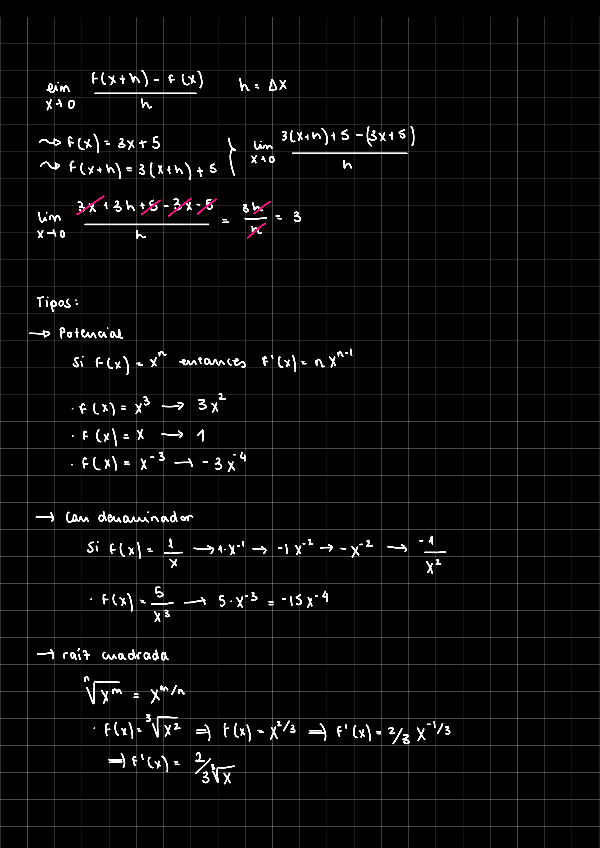 lim x→0 (f(x+h) - f(x))/h    h = Δx
~> f(x) = 3x+5
~> f(x+h) = 3(x+h)+5 } lim x→0 (3(x+h)+5-(3x+5))/h
lim x→0 (3x+3h+5-3x-5)/h = 3h/h = 3
Tipos:
→ Potencial
Si f(x) = xⁿ entonces f'(x) = n xⁿ⁻¹
· f(x) = x³ → 3x²
· f(x) = x → 1
· f(x) = x⁻³ → -3x⁻⁴
→ Con denominador
Si f(x) = 1/x → 1·x⁻¹ → -1x⁻² → -x⁻² → -1/x²
· f(x) = 5/x³ → 5·x⁻³ = -15x⁻⁴
→ raíz cuadrada
ⁿ√xᵐ = x^m/n
· f(x) = ³√x² ⇒ f(x) = x^2/3 ⇒ f'(x) = 2/3 x^-1/3
⇒ f'(x) = 2/3³√x